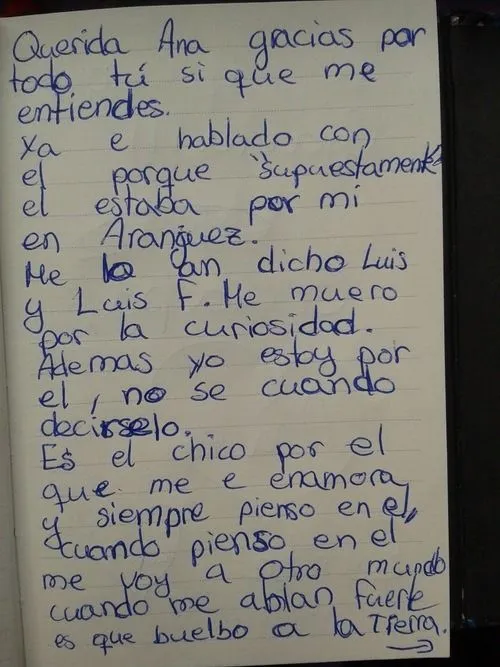 Querida Ana gracias por
todo tú si que me
entiendes.
Ya e hablado con
el porque "supuestamente"
el estaba por mi
en Aranguez.
Me lo an dicho Luis
y Luis F. Me muero
por la curiosidad.
Ademas yo estoy por
el, no se cuando
decirselo.
Es el chico por el
que me e enamora
y siempre pienso en el,
cuando pienso en el
me voy a otro mundo
cuando me ablan fuerte
es que buelbo a la Tierra.
→